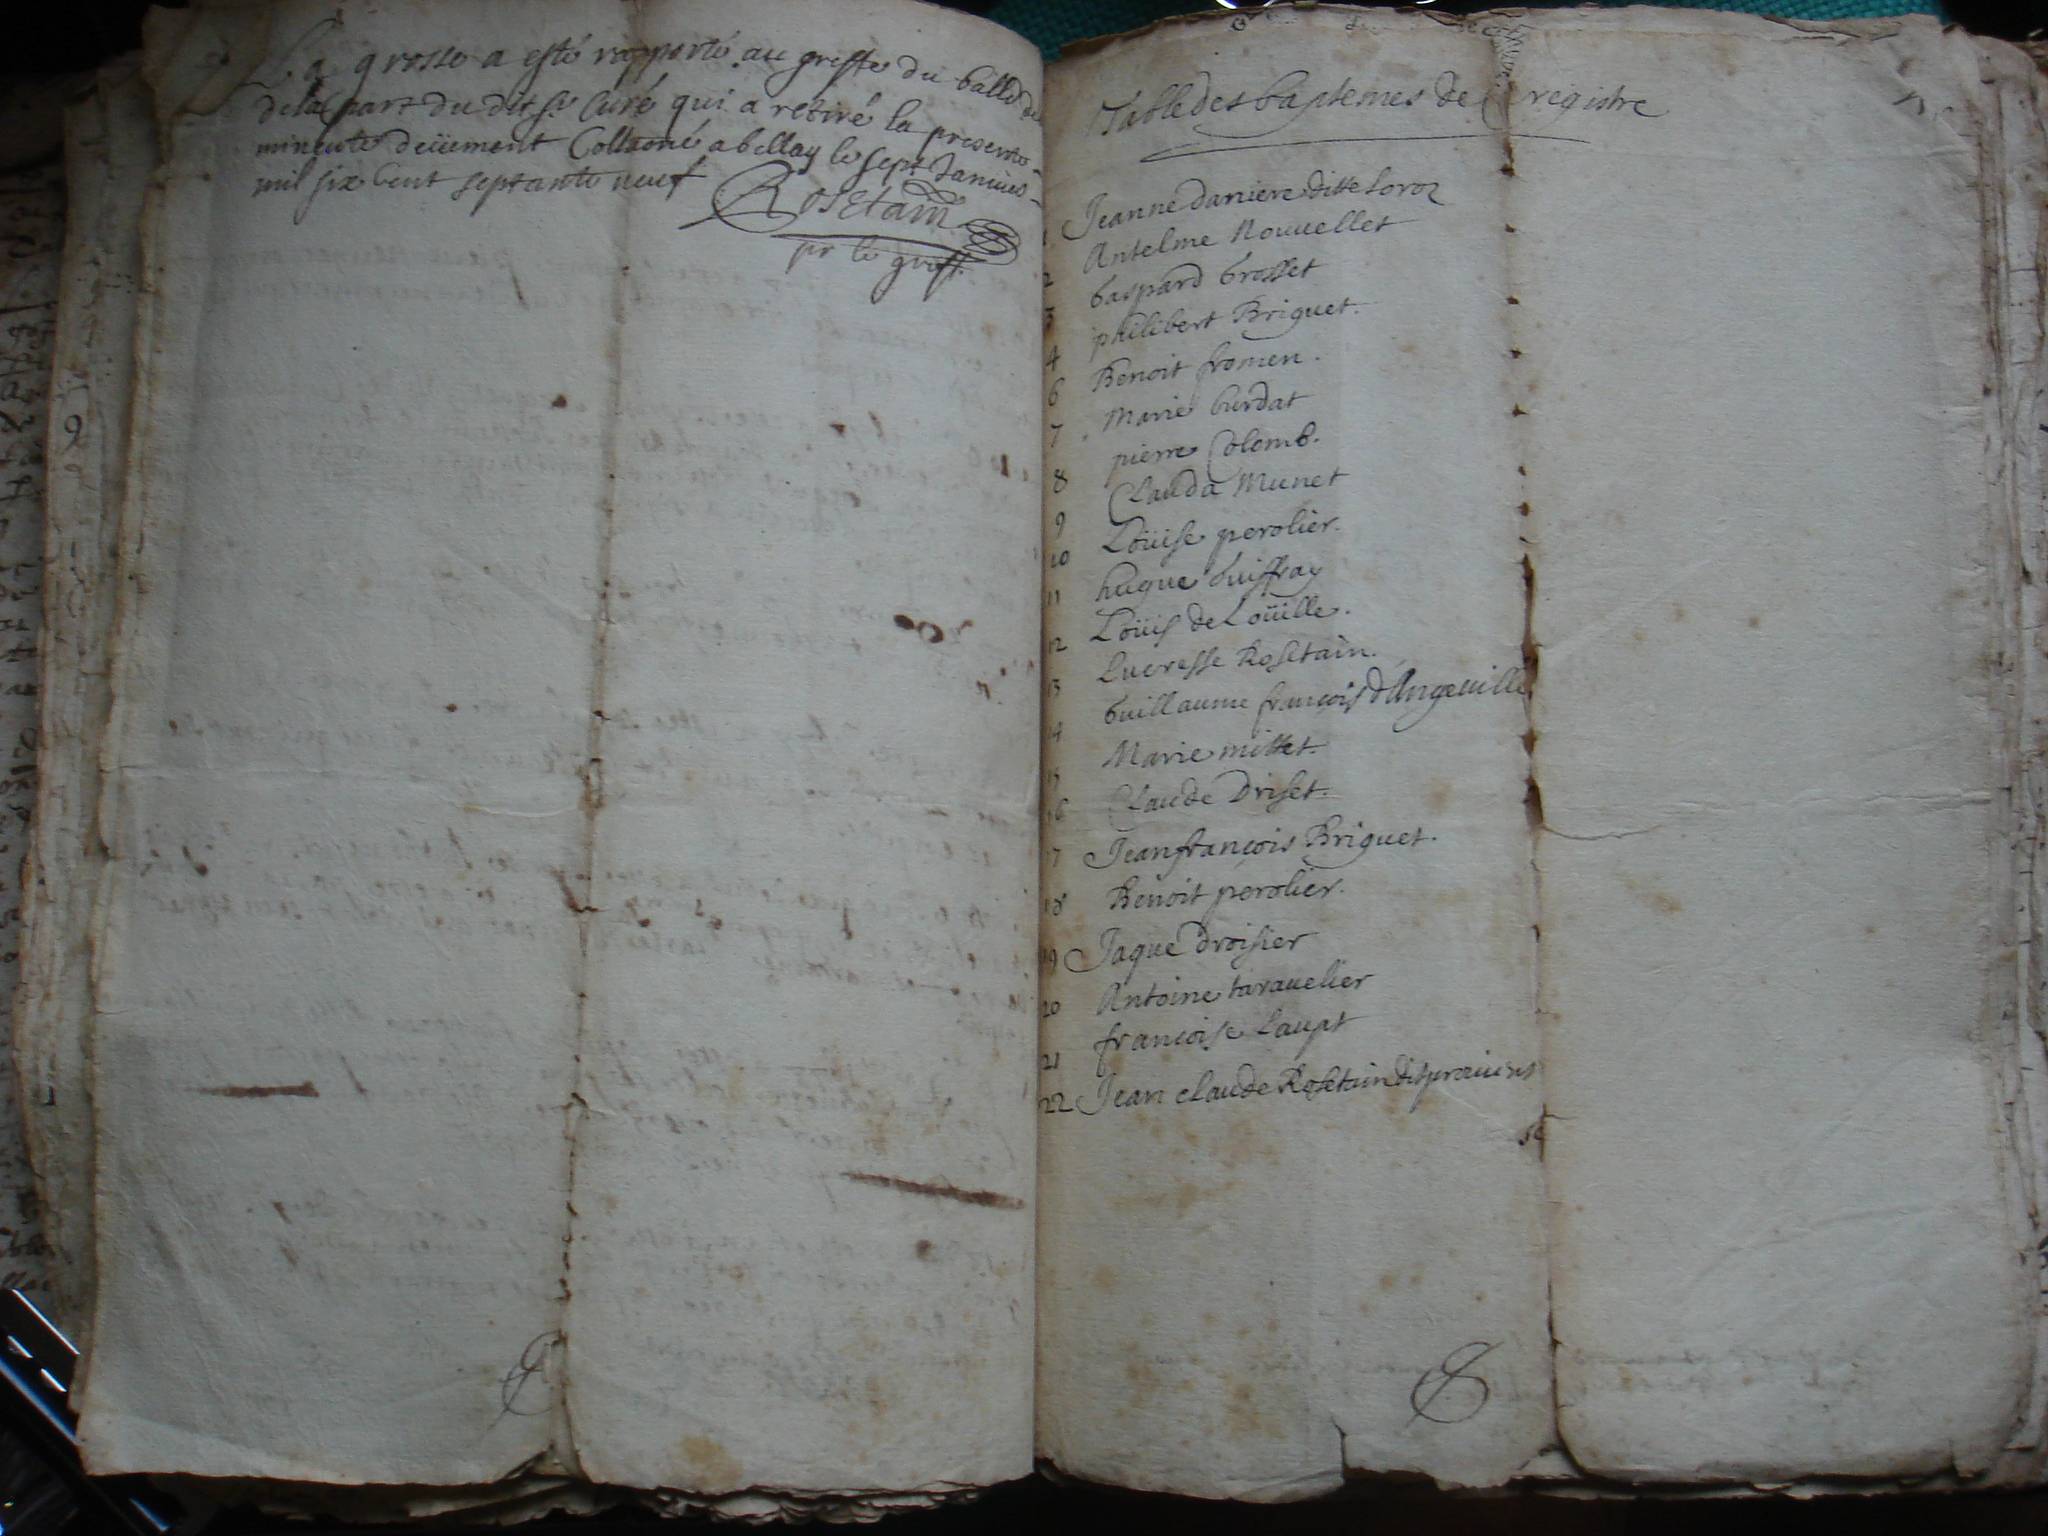 La grosse a esté rapporté au greffe du balle de
dela part du dit Sr Curé qui a retiré la presente
minutte deüement Collaoné a bellay le sept Janvier
mil six cent septante neuf
Rosetain
pr le greff.
Table des baptemes de Ce registre
1 Jeanne daniere ditte Loroz
2 Antelme Nouuellet
3 Gaspard Grosset
4 philibert Briguet.
6 Benoit fromen.
7 Marie burdat
8 pierre Colomb.
9 Clauda Munet
10 Loüise perolier.
11 hugue Guiffray
12 Loüis de Loüille.
13 Lucresse Rosetain.
14 Guillaume françois d'Angeuille
15 Marie millet.
16 Claude Driset.
17 Jean françois Briguet.
18 Benoit perolier.
19 Jaque Droisier
20 Antoine tarauelier
21 françoise Laupt
22 Jean claude Rosetain dit